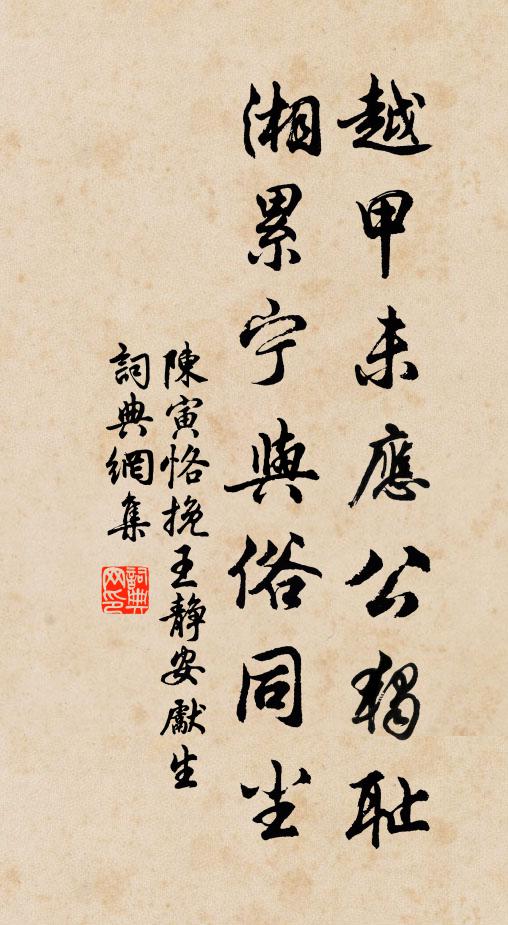 越甲未應公獨耻
湘累宁與俗同尘
陳寅恪挽王靜安獻生
詞典網集
詞典網印